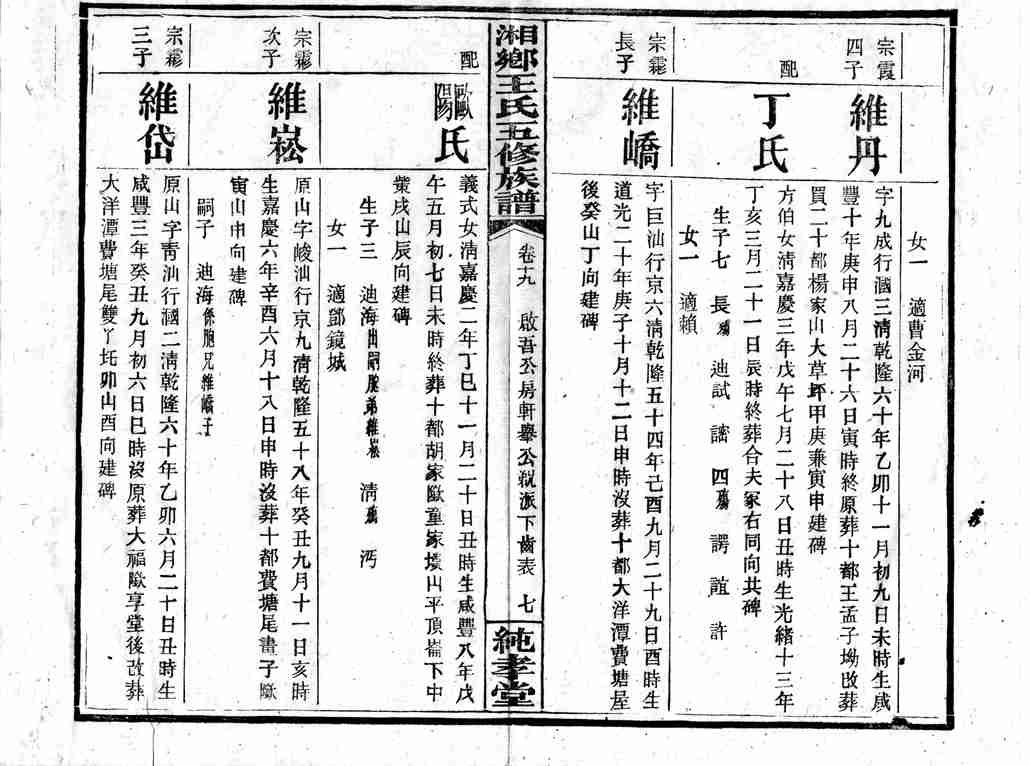 女一　適曹金河
宗霞
四子
維丹
字九成行涸三淸乾隆六十年乙卯十一月初九日未時生咸
豐十年庚申八月二十六日寅時終原葬十都王孟子坳改葬
買二十都楊家山大草坪甲庚兼寅申建碑
配
丁氏
方伯女淸嘉慶三年戊午七月二十八日丑時生光緖十三年
丁亥三月二十一日辰時終葬合夫冢右同向共碑
生子七　長殤　迪試　諡　四殤　諤　誼　許
女一　適賴
宗霦
長子
維嶠
字巨汕行京六淸乾隆五十四年己酉九月二十九日酉時生
道光二十年庚子十月十二日申時沒葬十都大洋潭費塘屋
後癸山丁向建碑
湘鄉王氏五修族譜
卷十九　啟吾公房軒舉公親派下齒表　七
純孝堂
配
歐陽氏
義式女淸嘉慶二年丁巳十一月二十日丑時生咸豐八年戊
午五月初七日未時終葬十都胡家歐童家墳山平頂崙下中
塋戌山辰向建碑
生子三　迪海出嗣胞弟維崧　淸殤　沔
女一　適鄧鏡城
宗霦
次子
維崧
原山字峻汕行京九淸乾隆五十八年癸丑九月十一日亥時
生嘉慶六年辛酉六月十八日申時沒葬十都費塘尾畫子歐
寅山申向建碑
嗣子　迪海係胞兄維嶠子
宗霦
三子
維岱
原山字靑汕行涸二淸乾隆六十年乙卯六月二十日丑時生
咸豐三年癸丑九月初六日巳時沒原葬大福歐享堂後改葬
大洋潭費塘尾雙丫坵卯山酉向建碑